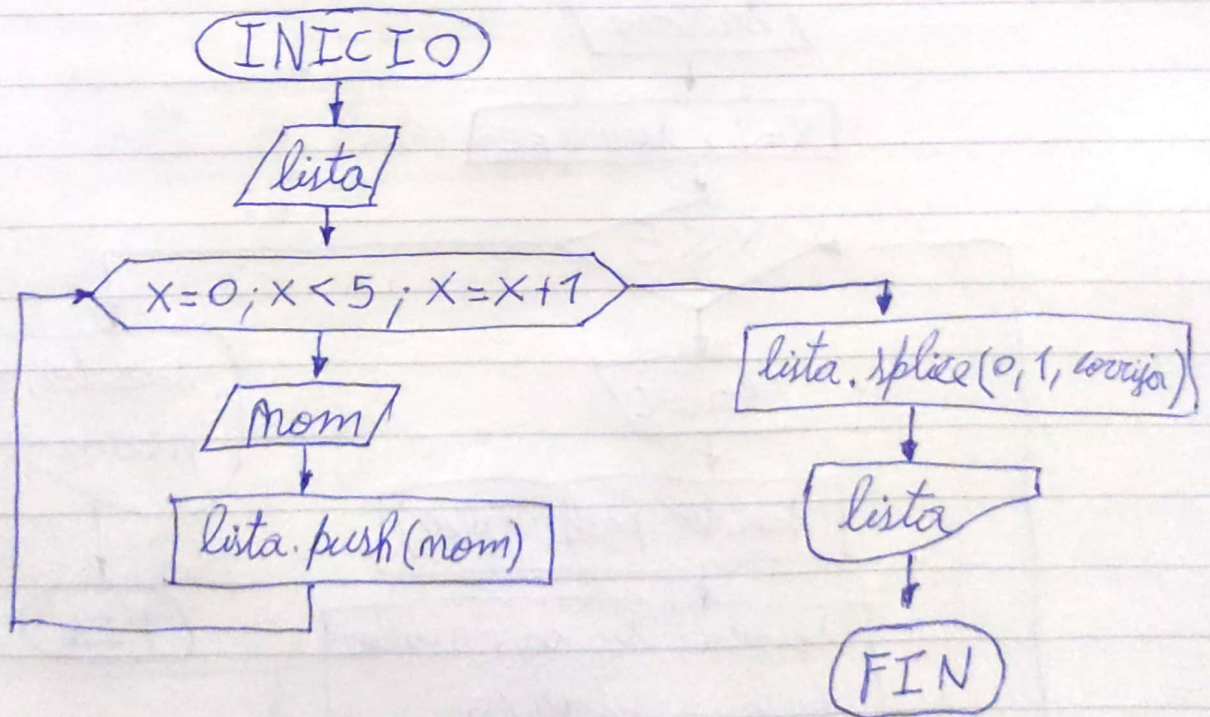 INICIO
lista
x=0; x<5; x=x+1
nom
lista.push(nom)
lista.splice(0,1,corrija)
lista
FIN